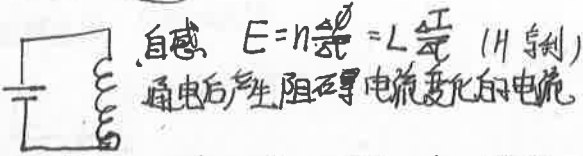 自感 E=n\frac{ΔΦ}{Δt}=L\frac{ΔI}{Δt} (H 亨利)
通电后产生阻碍电流变化的电流